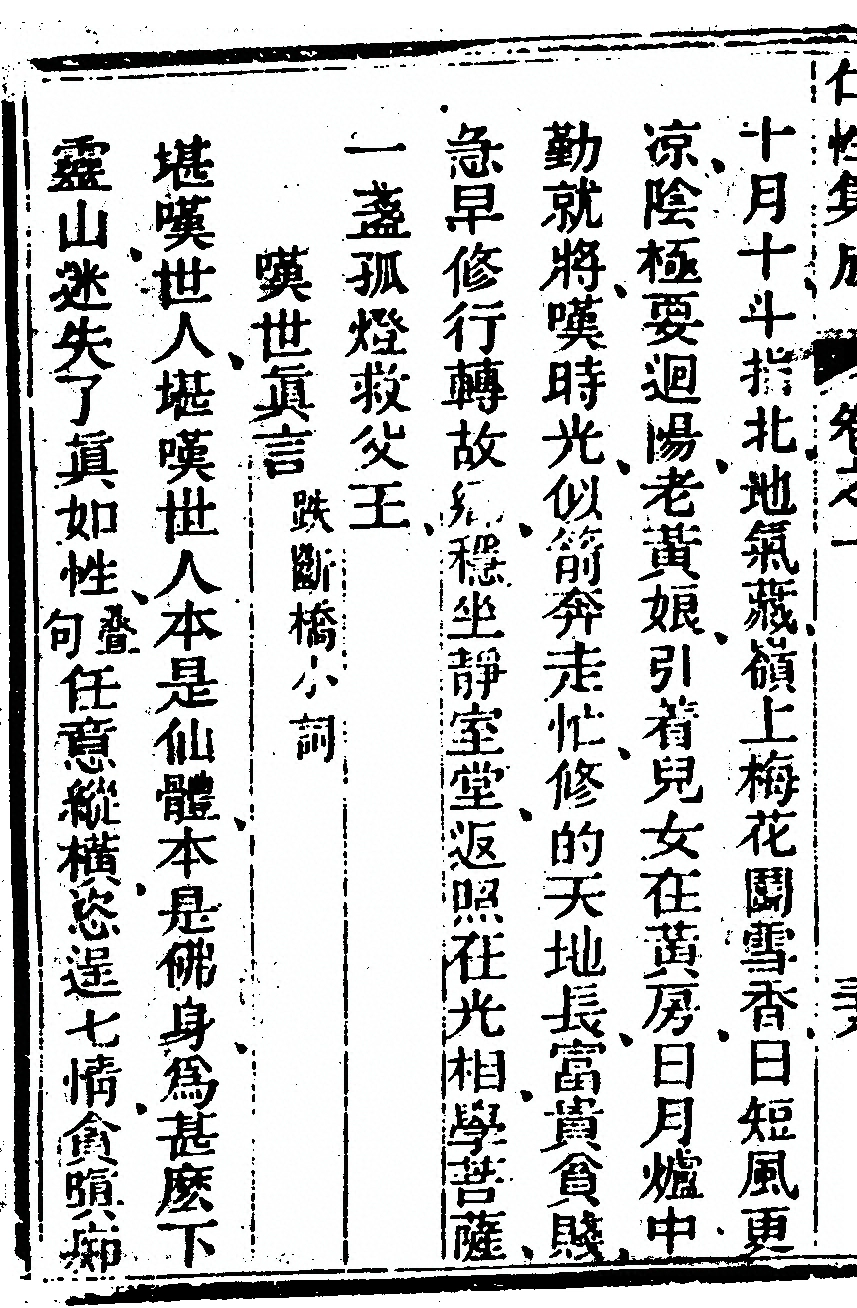 十月十斗指北地氣藏嶺上梅花鬪雪香日短風更
凉陰極要迴陽老黃娘引着兒女在黃房日月爐中
勤就將嘆時光似箭奔走忙修的天地長富貴貧賤
急早修行轉故穩坐靜室堂返照在光相學菩薩
一盞孤燈救父王
嘆世眞言 跌斷橋小詞
堪嘆世人堪嘆世人本是仙體本是佛身爲甚麽下
靈山迷失了眞如性叠句任意縱橫恣逞七情貪嗔痴